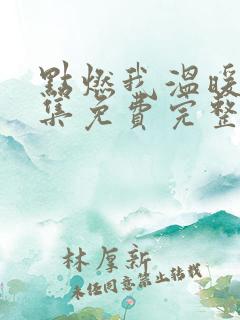 點燃我溫暖
集免費完整
林厚新
未经同意禁止转载